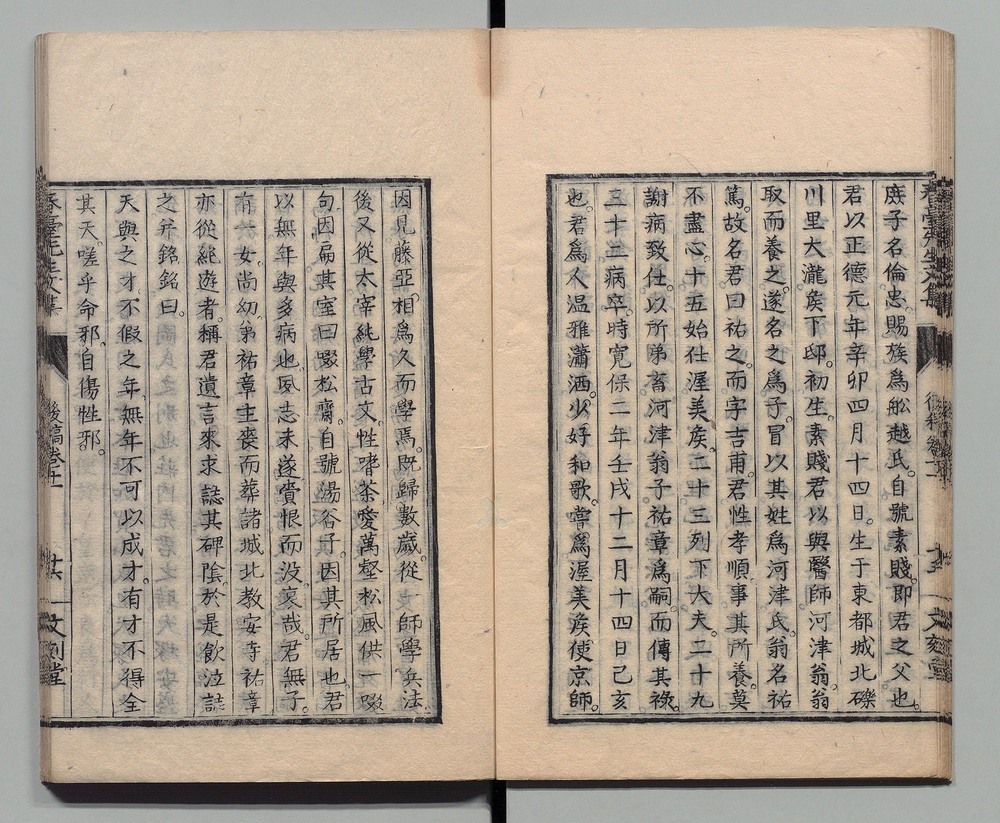 庶子名倫忠。賜族爲舩越氏。自號素賤。即君之父也。
君以正德元年辛卯四月十四日。生于東都城北礫
川里大瀧矦下邸。初生。素賤君以與醫師河津翁。翁
取而養之。遂名之爲子。冒以其姓爲河津氏。翁名祐
篤。故名君曰祐之。而字吉甫。君性孝順。事其所養。莫
不盡心。十五始仕渥美矦。二十三列下大夫。二十九
謝病致仕。以所弟畜河津翁子祐章爲嗣。而傳其祿。
三十三病卒。時寬保二年壬戌十二月十四日己亥
也。君爲人温雅瀟洒。少好和歌。嘗爲渥美矦使京師。
因見藤亞相爲久而學焉。既歸數歲。從一師學兵法。
後又從太宰純學古文。性嗜茶。愛萬壑松風供一啜
句。因扁其室曰啜松齋。自號湯谷子。因其所居也。君
以無年與多病也。夙志未遂。賫恨而没。哀哉。君無子。
有一女。尚幼。弟祐章主喪而葬諸城北教安寺。祐章
亦從純遊者。稱君遺言來求誌其碑陰。於是飲泣誌
之并銘。銘曰。
天與之才。不假之年。無年不可以成才。有才不得全
其天。嗟乎命邪。自傷性邪。
春臺先生文集
後稿卷十一
廿六
文刻堂